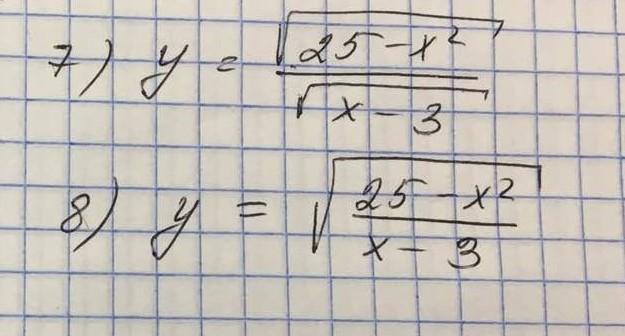 7) y = √(25 - x²) / √(x - 3)
8) y = √((25 - x²) / (x - 3))